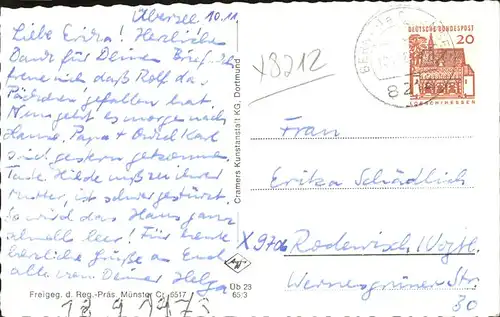 Übersee 10.11.
Liebe Erika! Herzlichen
Dank für Deinen Brief. Ich
freue mich daß Rolf das
Päckchen gefallen hat.
Nun geht es morgen nach
Hanno. Papa + Onkel Karl
sind gestern gekommen.
Tante Hilde muß zu ihrer
Mutter, ist schwer gestürzt.
So wird das Haus ganz
allmähl leer! Für heute
herzliche Grüße an Euch
alle von Deiner Helga
Freigeg. d. Reg.-Präs. Münster Cr. 6517
Üb 23
65/3
18 9 197
Cramers Kunstanstalt KG, Dortmund
X8212
82
DEUTSCHE BUNDESPOST
20
LORSCH/HESSEN
Frau
Erika Schädlich
X 9706 Rodewisch/Vogtl.
Wernesgrüner Str.
30